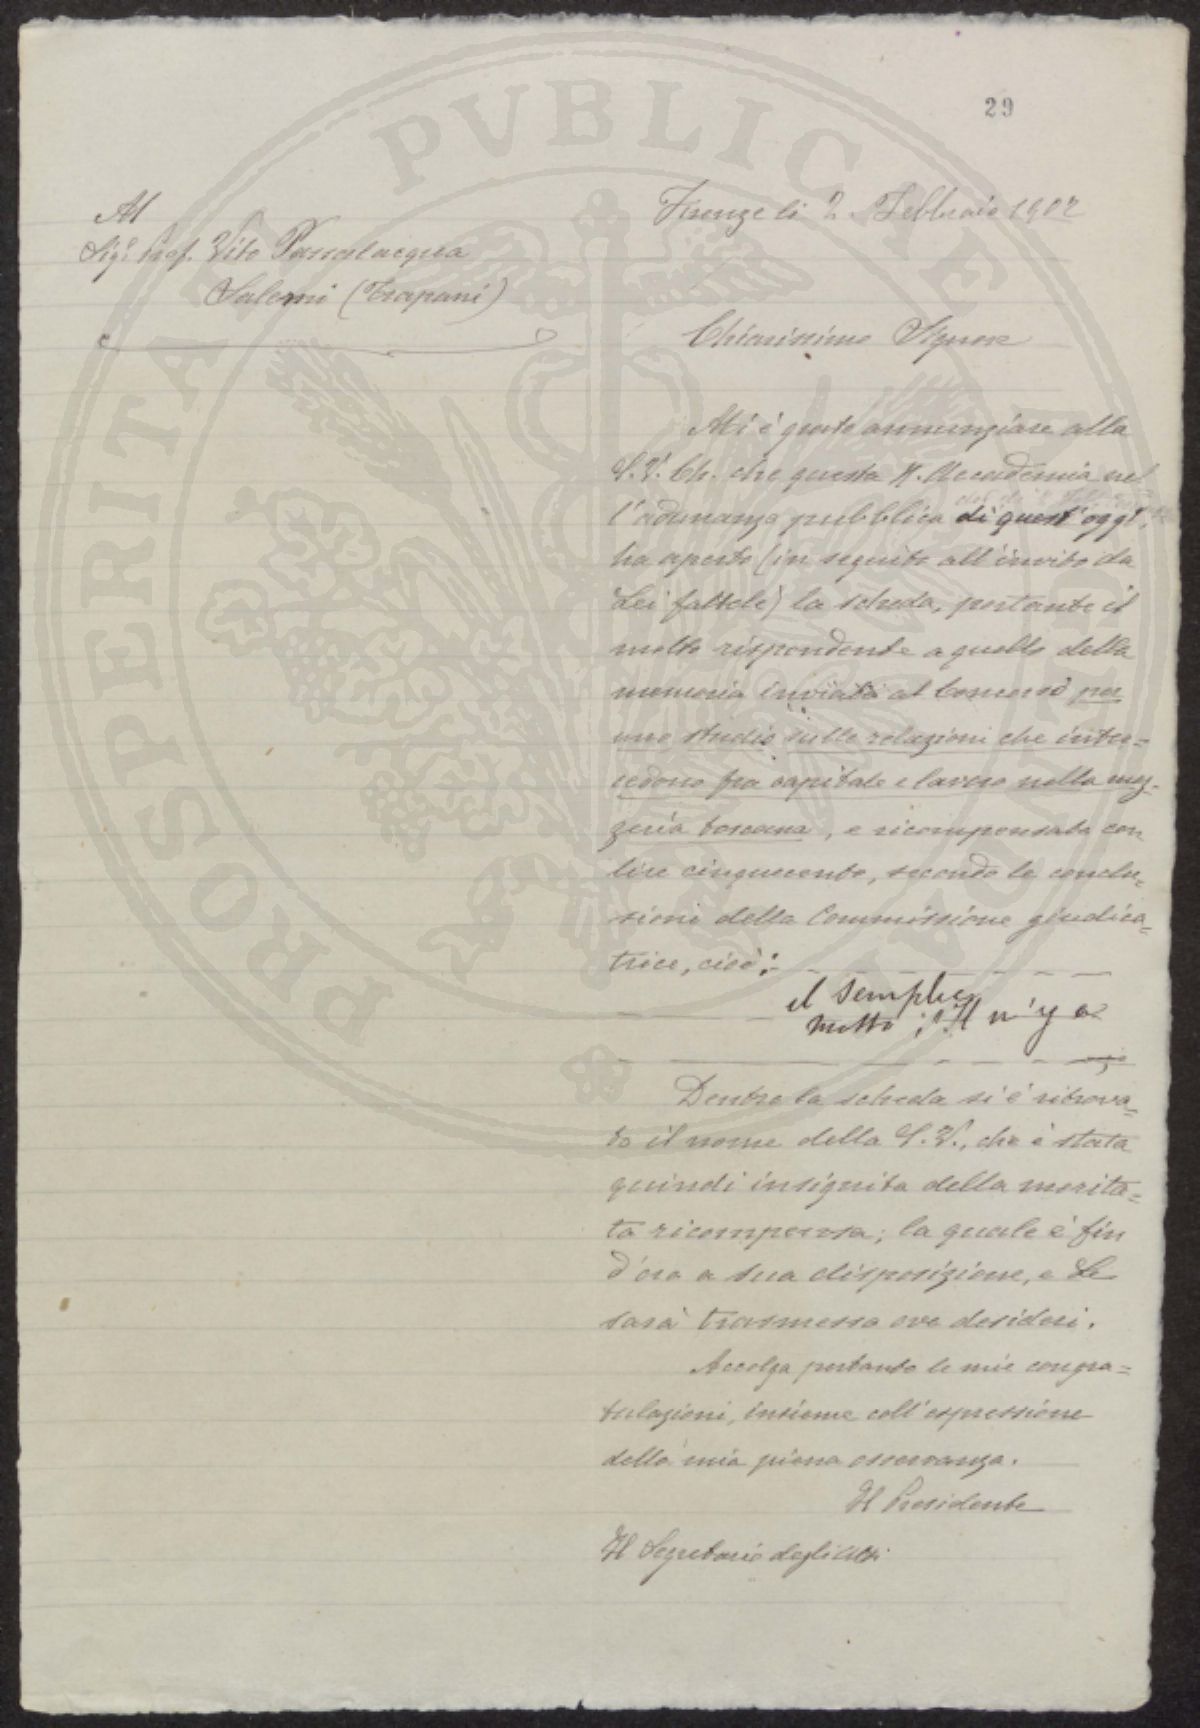 29
Firenze li 2. Febbraio 1902
Al
Sigr. Prof. Vito Passalacqua
Salemi (Trapani)
Chiarissimo Signore
Mi è grato annunziare alla
S.V. Ch. che questa R. Accademia nel
l'adunanza pubblica di quest'oggi,
ha aperto (in seguito all'invito da
Lei fattole) la scheda, portante il
motto rispondente a quello della
memoria inviata al Concorso per
uno studio sulle relazioni che inter=
cedono fra capitale e lavoro nella mez-
zeria toscana, e ricompensata con
lire cinquecento, secondo le conclu=
sioni della Commissione giudica=
trice, cioè:
il semplice
motto: "Il n'y a
Dentro la scheda si è ritrova=
to il nome della S.V., che è stata
quindi insignita della merita=
ta ricompensa; la quale è fin
d'ora a sua disposizione, e Le
sarà trasmessa ove desideri.
Accolga pertanto le mie congra=
tulazioni, insieme coll'espressione
della mia piena osservanza.
Il Presidente
Il Segretario degli Atti
PROSPERITATI PVBLICAE AVGENDAE